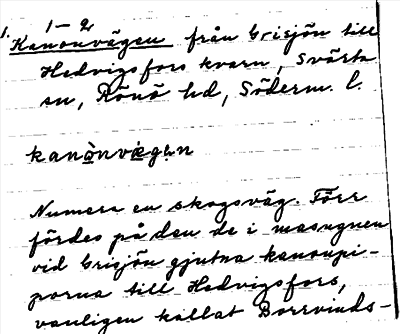 1-2
1. Kanonvägen från Grisjön till
Hedvigsfors kvarn, Svärta
sn, Rönö hd, Söderm. l.
kanònvègen
Numera en skogsväg. Förr
fördes på den de i masugnen
vid Grisjön gjutna kanonpi-
porna till Hedvigsfors,
vanligen kallat Borrvinds-